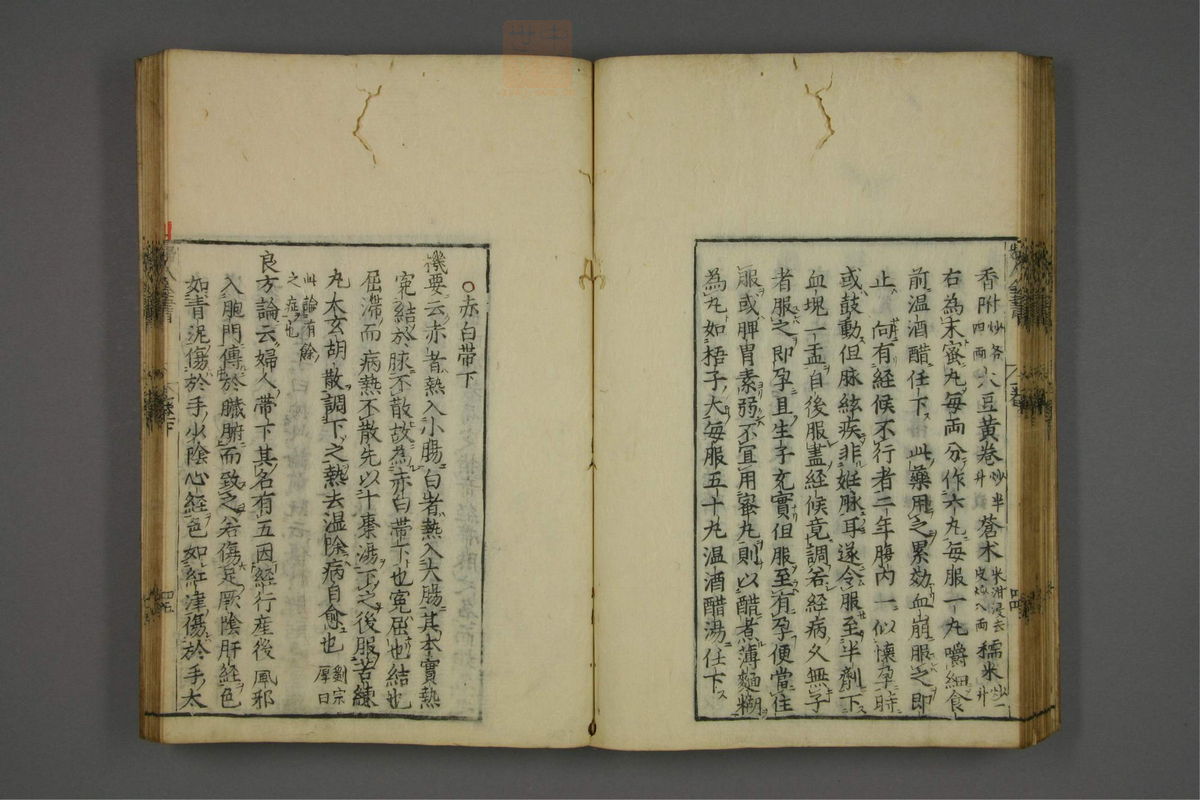 香附炒各四兩大豆黄卷炒半升蒼术米泔浸去皮焙八兩糯米炒一升
右為末蜜丸毎両分作六丸毎服一丸嚼細食
前温酒醋任下此藥用之累効血崩服之即
止向有経候不行者二年腸内一似懐孕時
或鼓動但脉絃疾非姙脉耳遂令服至半劑下
血塊一盂自後服盡経候竟調若経病久無子
者服之即孕且生子充實但服至有孕便當住
服或脾胃素弱不宜用蜜丸則以醋煮薄麵糊
為丸如梧子大毎服五十丸温酒醋湯任下
○赤白帯下
機要云赤者熱入小腸白者熱入大腸其本實熱
寃結於脉不散故為赤白帯下也寃屈也結也
屈滞而病熱不散先以十棗湯下之後服苦練
丸大玄胡散調下之熱去温除病自愈也劉宗厚曰
此論有餘之症也
良方論云婦人帯下其名有五因経行産後風邪
入胞門傳於臓腑而致之若傷足厥陰肝経色
如青泥傷於手少陰心経色如紅津傷於手太